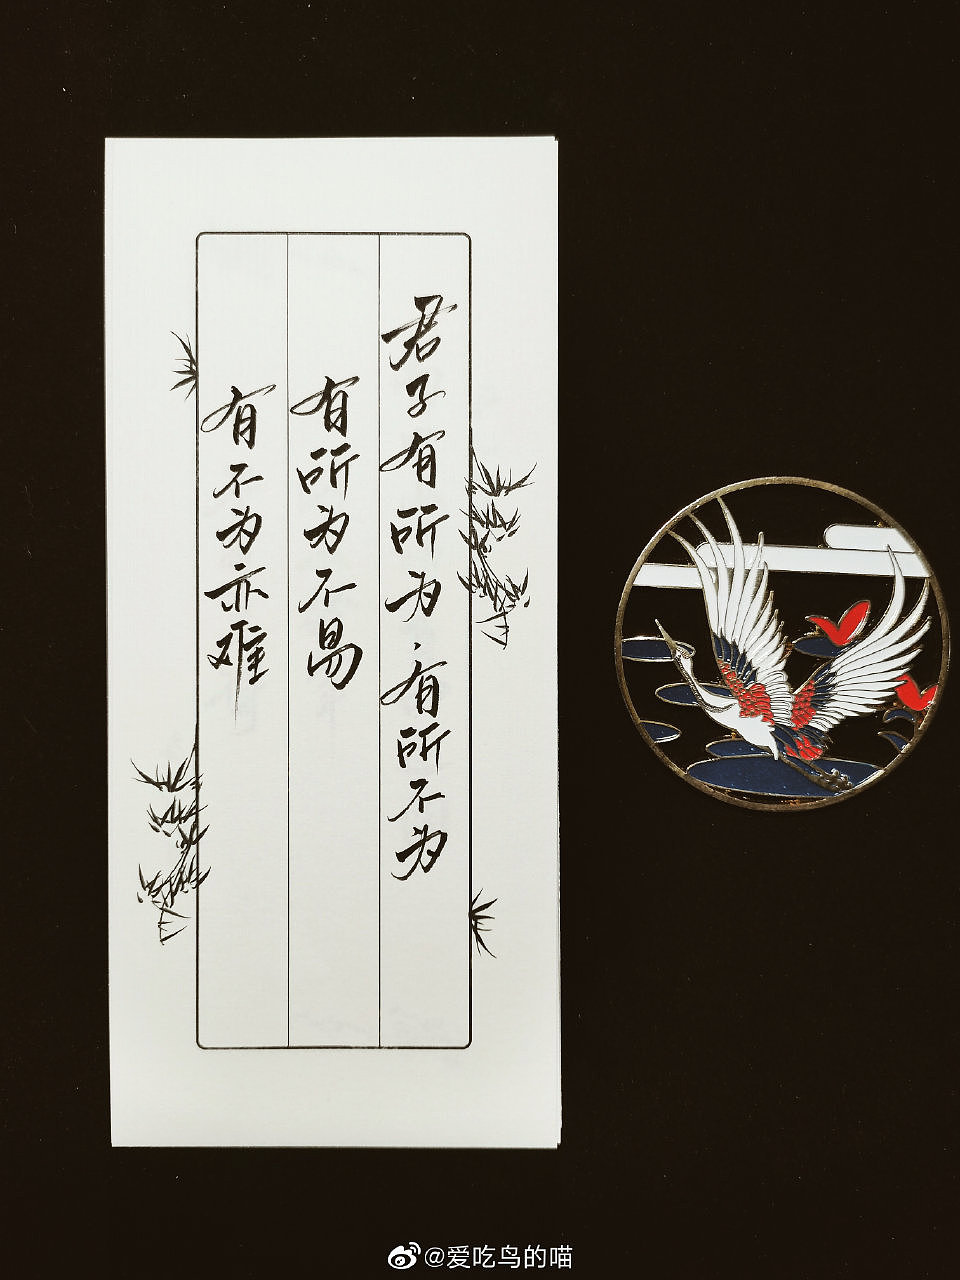 君子有所为，有所不为
有所为不易
有不为亦难
@爱吃鸟的喵